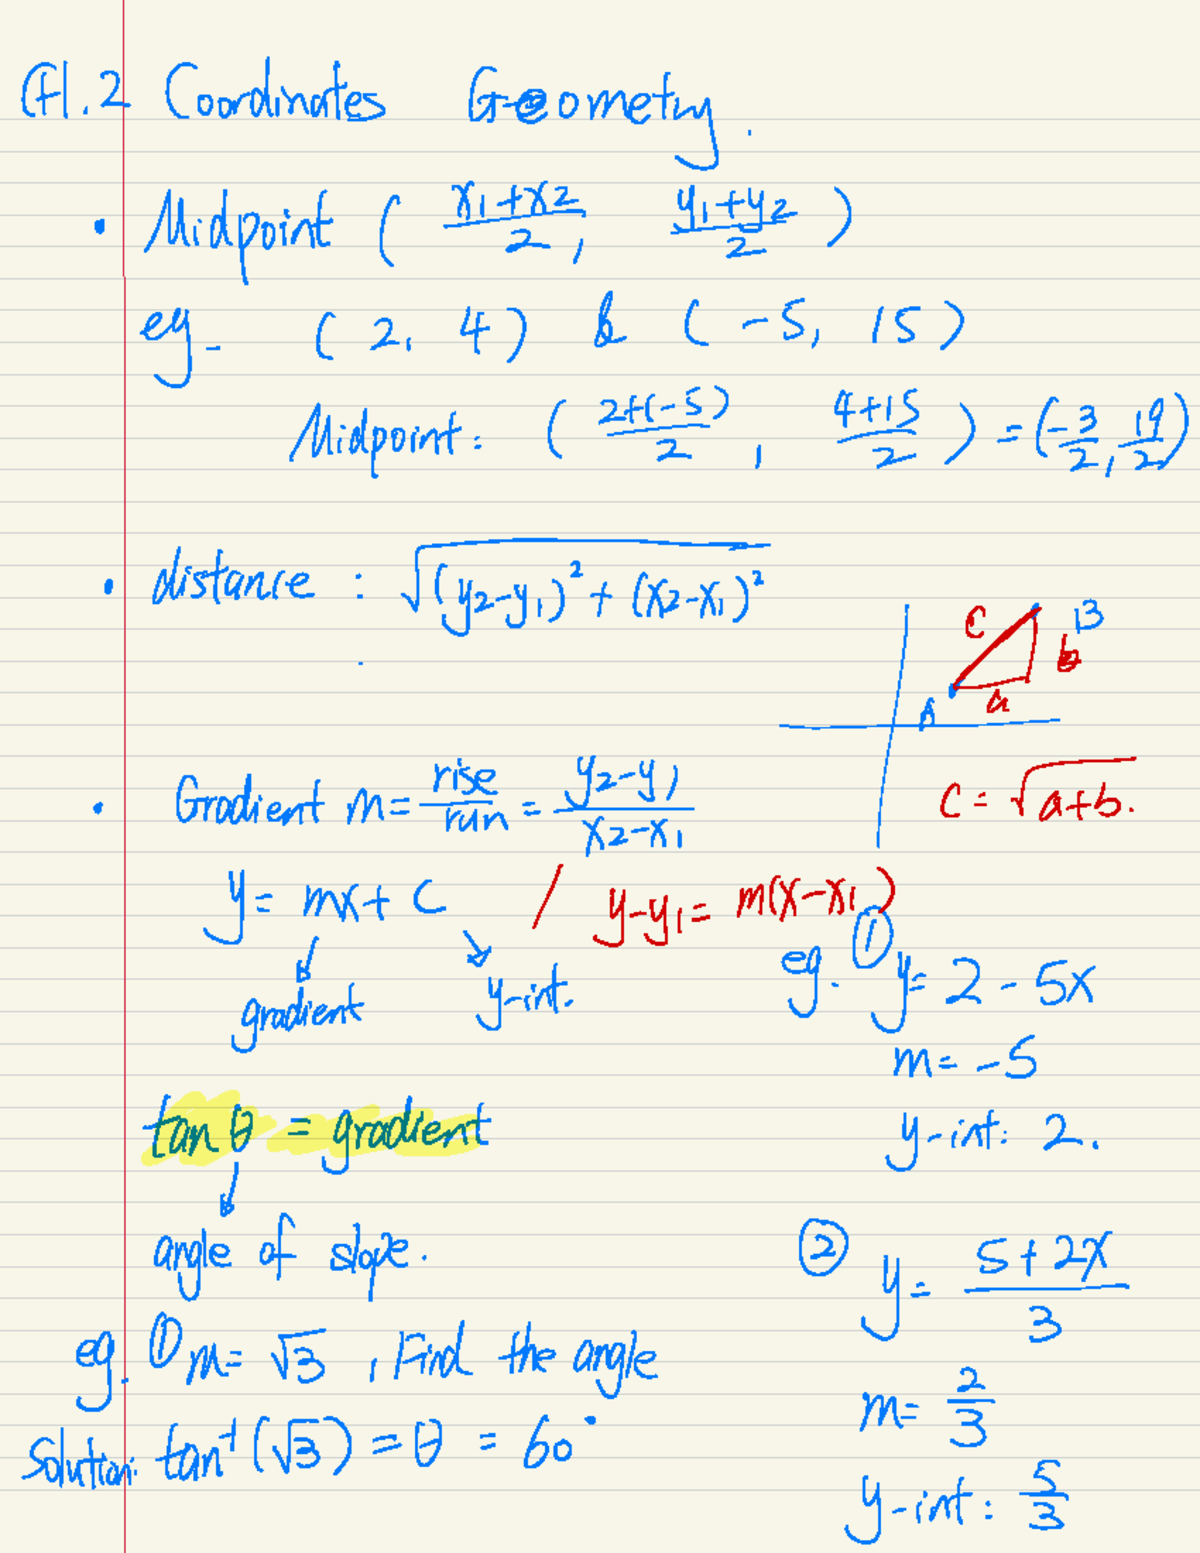 CH.2 Coordinates Geometry.
• Midpoint ( x₁+x₂/2, y₁+y₂/2 )
eg. (2, 4) & (-5, 15)
Midpoint: ( 2+(-5)/2, 4+15/2 ) = (-3/2, 19/2)
• distance : √((y₂-y₁)² + (x₂-x₁)²)
C B
b
A a
C = √a+b.
• Gradient m = rise/run = y₂-y₁/x₂-x₁
y = mx + C / y-y₁ = m(x-x₁)
gradient y-int.
eg. ① y = 2 - 5x
m = -5
y-int: 2.
tan θ = gradient
angle of slope.
eg. ① m = √3, Find the angle
Solution: tan⁻¹(√3) = θ = 60°
② y = 5+2x/3
m = 2/3
y-int: 5/3